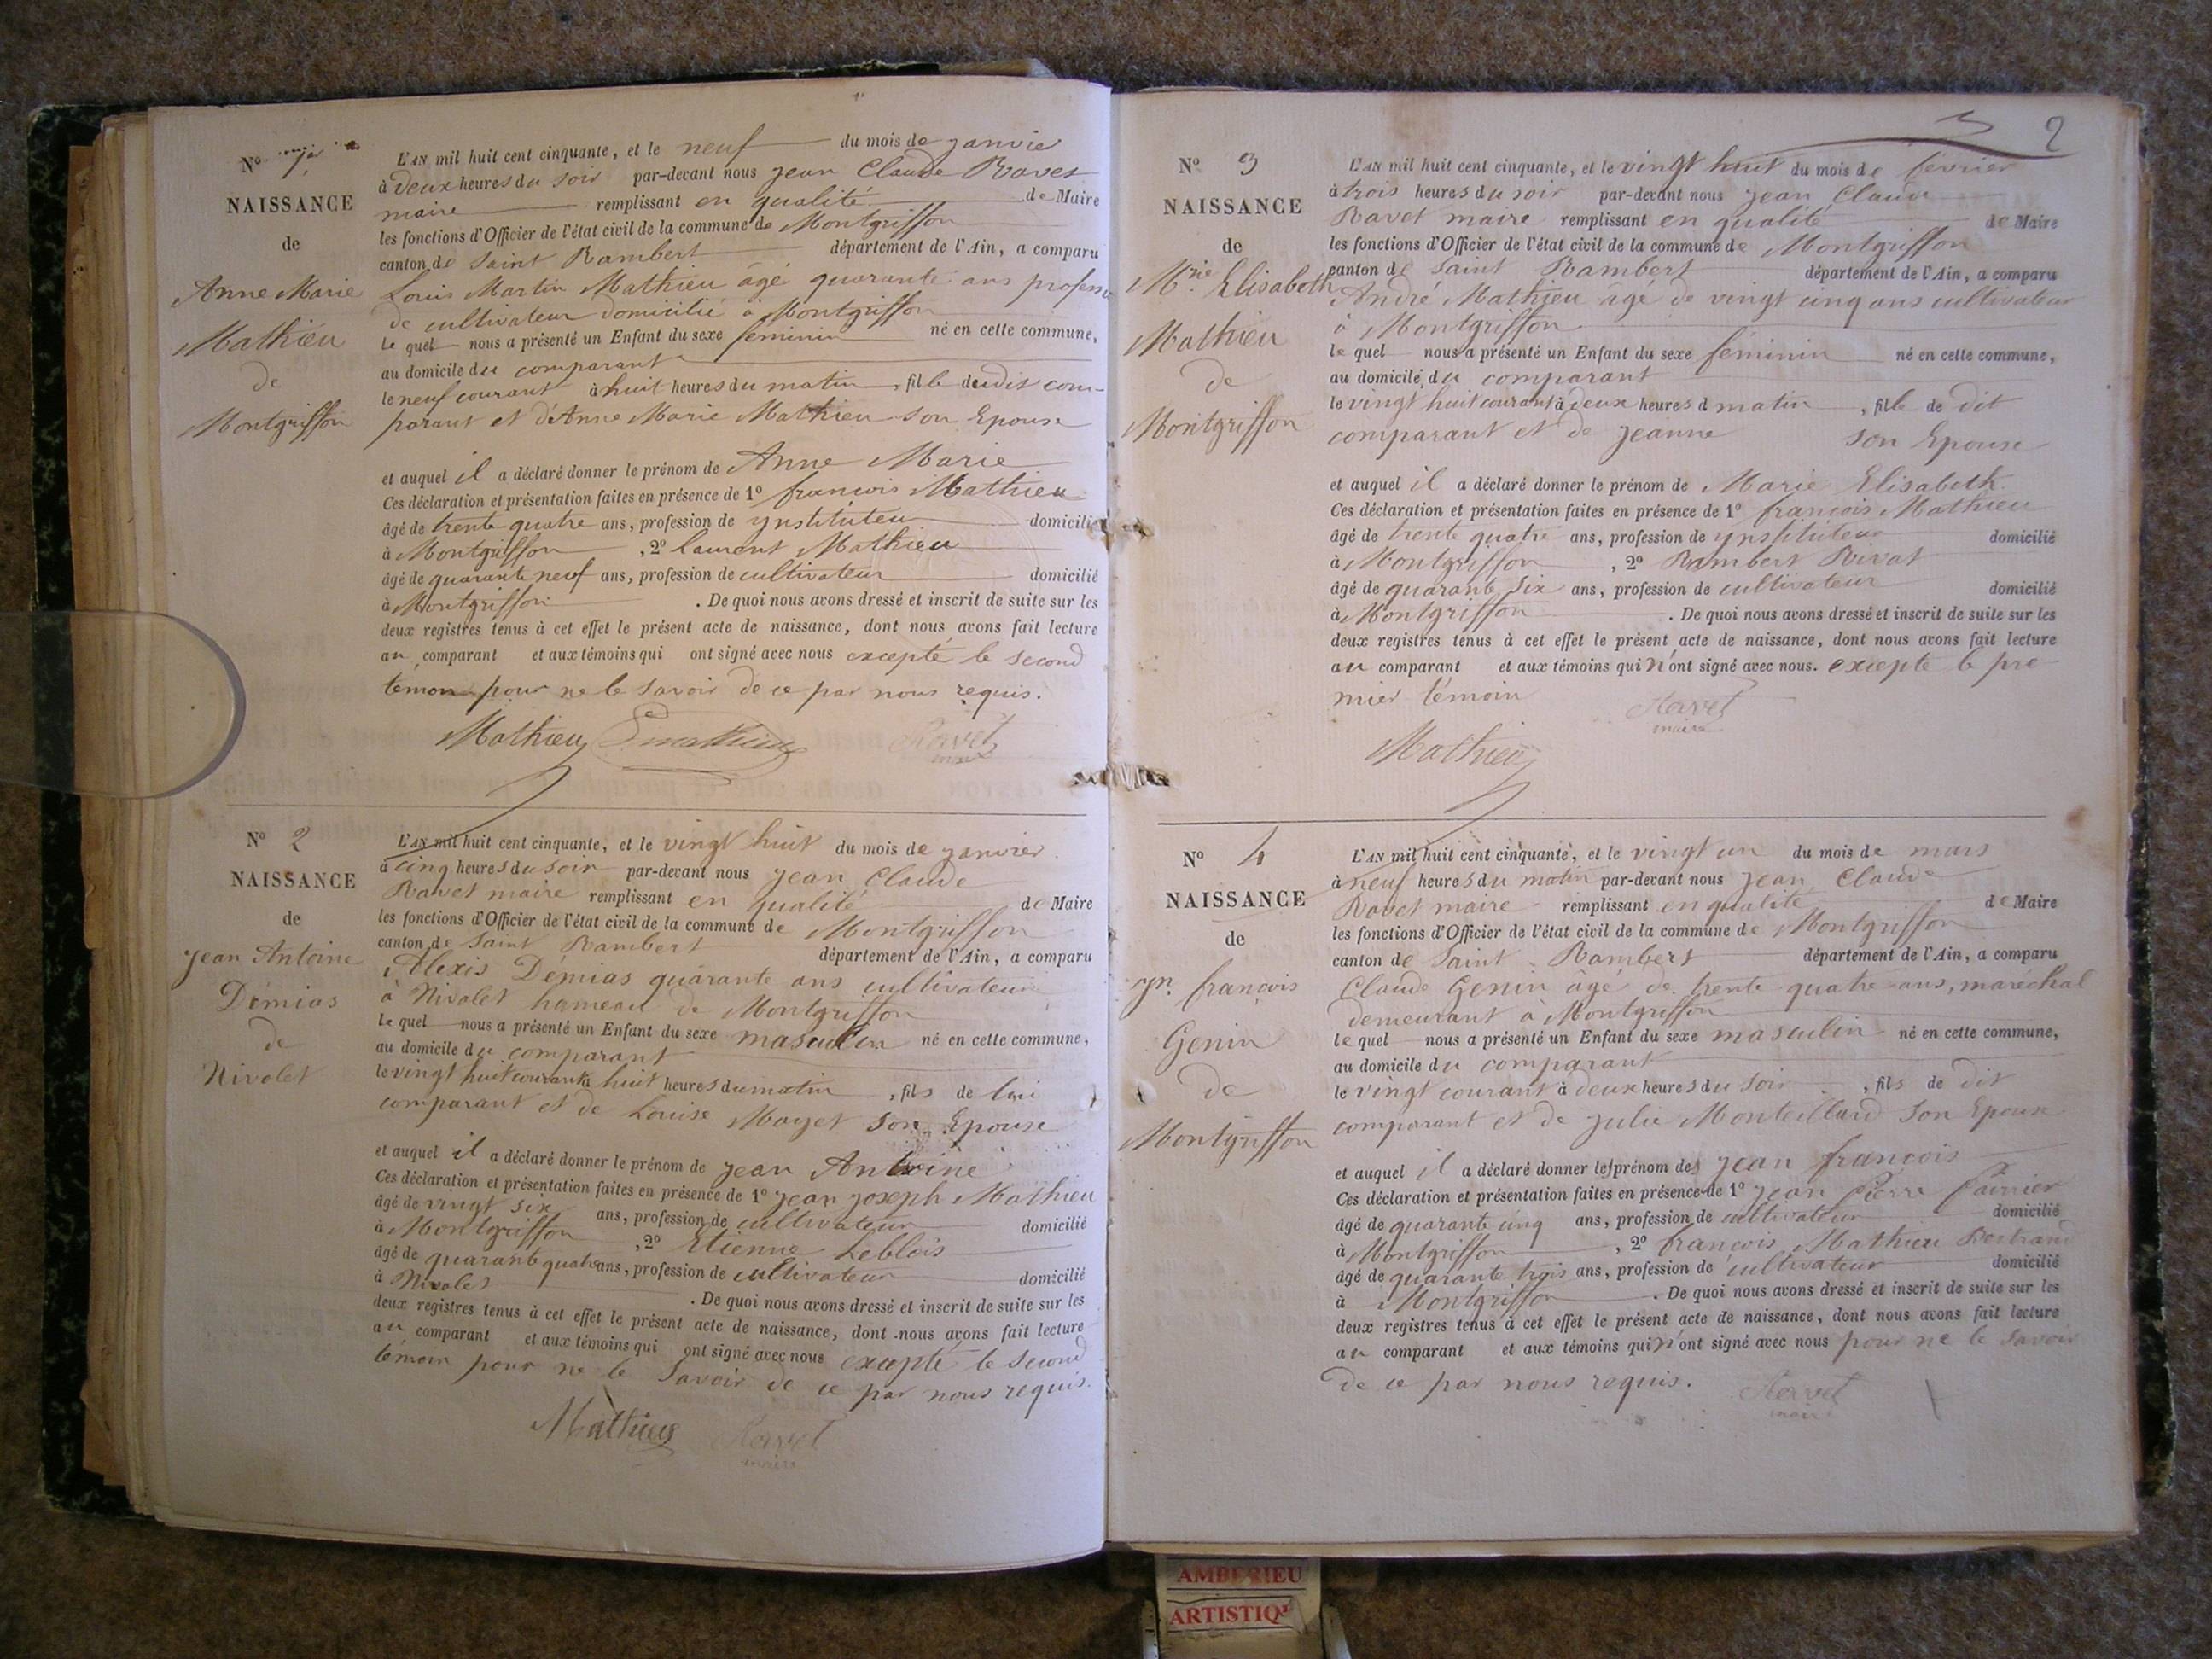 N° 1er
NAISSANCE
de
Anne Marie
Mathieu
de
Montgriffon
L'AN mil huit cent cinquante, et le neuf du mois de janvier
à deux heures du soir par-devant nous jean Claude Ravet
maire remplissant en qualité de Maire
les fonctions d'Officier de l'état civil de la commune de Montgriffon
canton de Saint Rambert département de l'Ain, a comparu
Louis Martin Mathieu âgé quarante ans profession
de cultivateur domicilié à Montgriffon
le quel nous a présenté un Enfant du sexe féminin né en cette commune,
au domicile du comparant
le neuf courant à huit heures du matin, fille dudit com-
parant et d'Anne Marie Mathieu son Epouse
et auquel il a déclaré donner le prénom de Anne Marie
Ces déclaration et présentation faites en présence de 1° françois Mathieu
âgé de trente quatre ans, profession de ynstituteur domicilié
à Montgriffon, 2° laurent Mathieu
âgé de quarante neuf ans, profession de cultivateur domicilié
à Montgriffon. De quoi nous avons dressé et inscrit de suite sur les
deux registres tenus à cet effet le présent acte de naissance, dont nous avons fait lecture
au comparant et aux témoins qui ont signé avec nous excepté le second
temoin pour ne le savoir de ce par nous requis.
Mathieu Mathieu Ravet
maire
N° 2
NAISSANCE
de
jean Antoine
Démias
de
Nivolet
L'AN mil huit cent cinquante, et le vingt huit du mois de janvier
à cinq heures du soir par-devant nous jean Claude
Ravet maire remplissant en qualité de Maire
les fonctions d'Officier de l'état civil de la commune de Montgriffon
canton de Saint Rambert département de l'Ain, a comparu
Alexis Démias quarante ans cultivateur
à Nivolet hameau de Montgriffon
le quel nous a présenté un Enfant du sexe masculin né en cette commune,
au domicile du comparant
le vingt huit courant à huit heures du matin, fils de lui
comparant et de Louise Moyet son Epouse
et auquel il a déclaré donner le prénom de jean Antoine
Ces déclaration et présentation faites en présence de 1° jean joseph Mathieu
âgé de vingt six ans, profession de cultivateur domicilié
à Montgriffon, 2° Etienne Leblois
âgé de quarante quatre ans, profession de cultivateur domicilié
à Nivolet. De quoi nous avons dressé et inscrit de suite sur les
deux registres tenus à cet effet le présent acte de naissance, dont nous avons fait lecture
au comparant et aux témoins qui ont signé avec nous excepté le second
témoin pour ne le savoir de ce par nous requis.
Mathieu Ravet
maire
2
N° 3
NAISSANCE
de
Mrie Elisabeth
Mathieu
de
Montgriffon
L'AN mil huit cent cinquante, et le vingt huit du mois de février
à trois heures du soir par-devant nous jean Claude
Ravet maire remplissant en qualité de Maire
les fonctions d'Officier de l'état civil de la commune de Montgriffon
canton de Saint Rambert département de l'Ain, a comparu
André Mathieu âgé de vingt cinq ans cultivateur
à Montgriffon
le quel nous a présenté un Enfant du sexe féminin né en cette commune,
au domicile du comparant
le vingt huit courant à deux heures d matin, fille de dit
comparant et de jeanne son Epouse
et auquel il a déclaré donner le prénom de Marie Elisabeth.
Ces déclaration et présentation faites en présence de 1° françois Mathieu
âgé de trente quatre ans, profession de ynstituteur domicilié
à Montgriffon, 2° Rambert Rivat
âgé de quarante six ans, profession de cultivateur domicilié
à Montgriffon. De quoi nous avons dressé et inscrit de suite sur les
deux registres tenus à cet effet le présent acte de naissance, dont nous avons fait lecture
au comparant et aux témoins qui n'ont signé avec nous. excepté le pre
mier témoin
Ravet
maire
Mathieu
N° 4
NAISSANCE
de
jn. françois
Genin
de
Montgriffon
L'AN mil huit cent cinquante, et le vingt un du mois de mars
à neuf heures du matin par-devant nous jean Claude
Ravet maire remplissant en qualité de Maire
les fonctions d'Officier de l'état civil de la commune de Montgriffon
canton de Saint Rambert département de l'Ain, a comparu
Claude Genin âgé de trente quatre ans, maréchal
demeurant à Montgriffon
le quel nous a présenté un Enfant du sexe masculin né en cette commune,
au domicile du comparant
le vingt courant à deux heures du soir, fils de dit
comparant et de julie Monteillard son Epouse
et auquel il a déclaré donner les prénom des jean françois
Ces déclaration et présentation faites en présence de 1° jean Pierre
âgé de quarante cinq ans, profession de cultivateur domicilié
à Montgriffon, 2° françois Mathieu Bertrand
âgé de quarante trois ans, profession de cultivateur domicilié
à Montgriffon. De quoi nous avons dressé et inscrit de suite sur les
deux registres tenus à cet effet le présent acte de naissance, dont nous avons fait lecture
au comparant et aux témoins qui n'ont signé avec nous pour ne le savoir
de ce par nous requis. Ravet
maire
AMBERIEU
ARTISTIQ